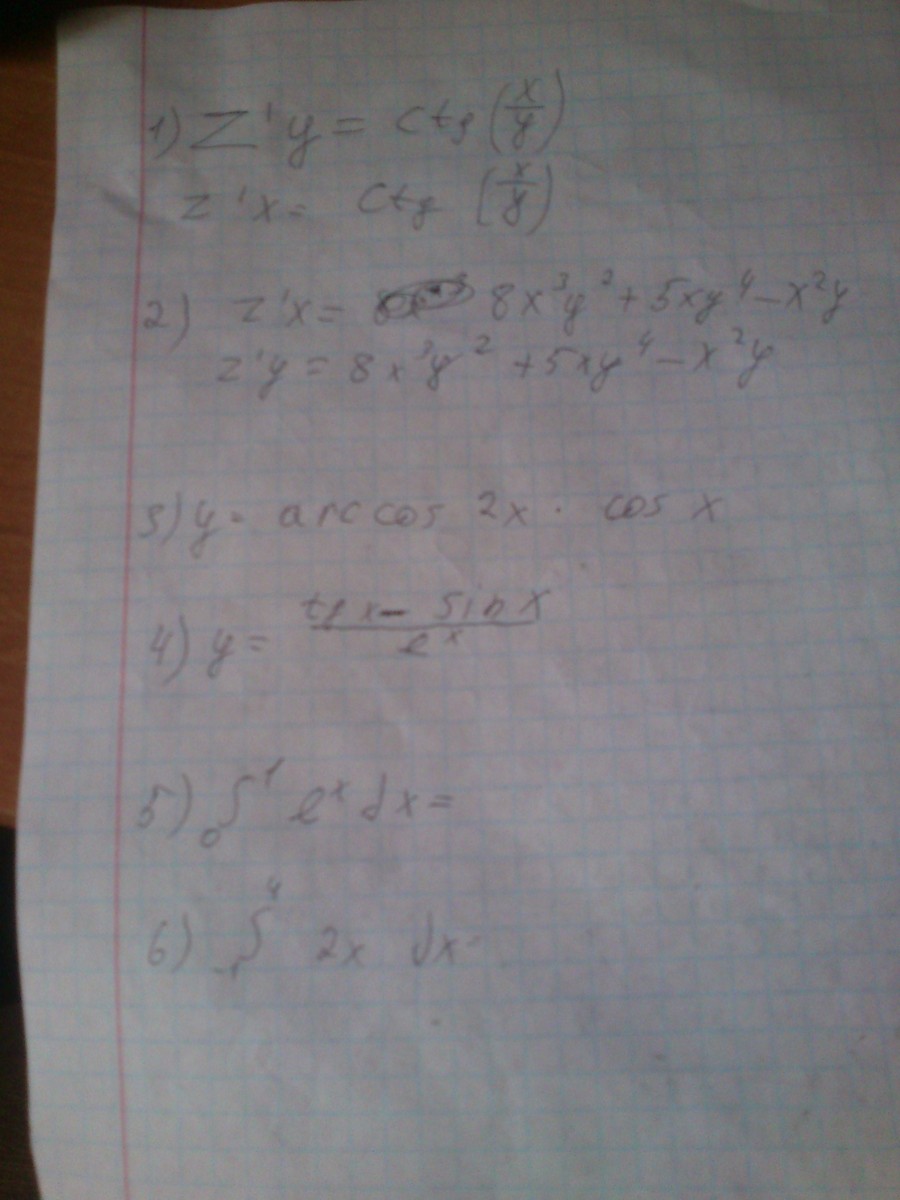 1) Z'y = ctg (x/y)
z'x = ctg (x/y)
2) z'x = 8x³y² + 5xy⁴ - x²y
z'y = 8x³y² + 5xy⁴ - x²y
3) y = arccos 2x · cos x
4) y = (tg x - sin x)/eˣ
5) ₀∫¹ eˣ dx =
6) ∫⁴ 2x dx